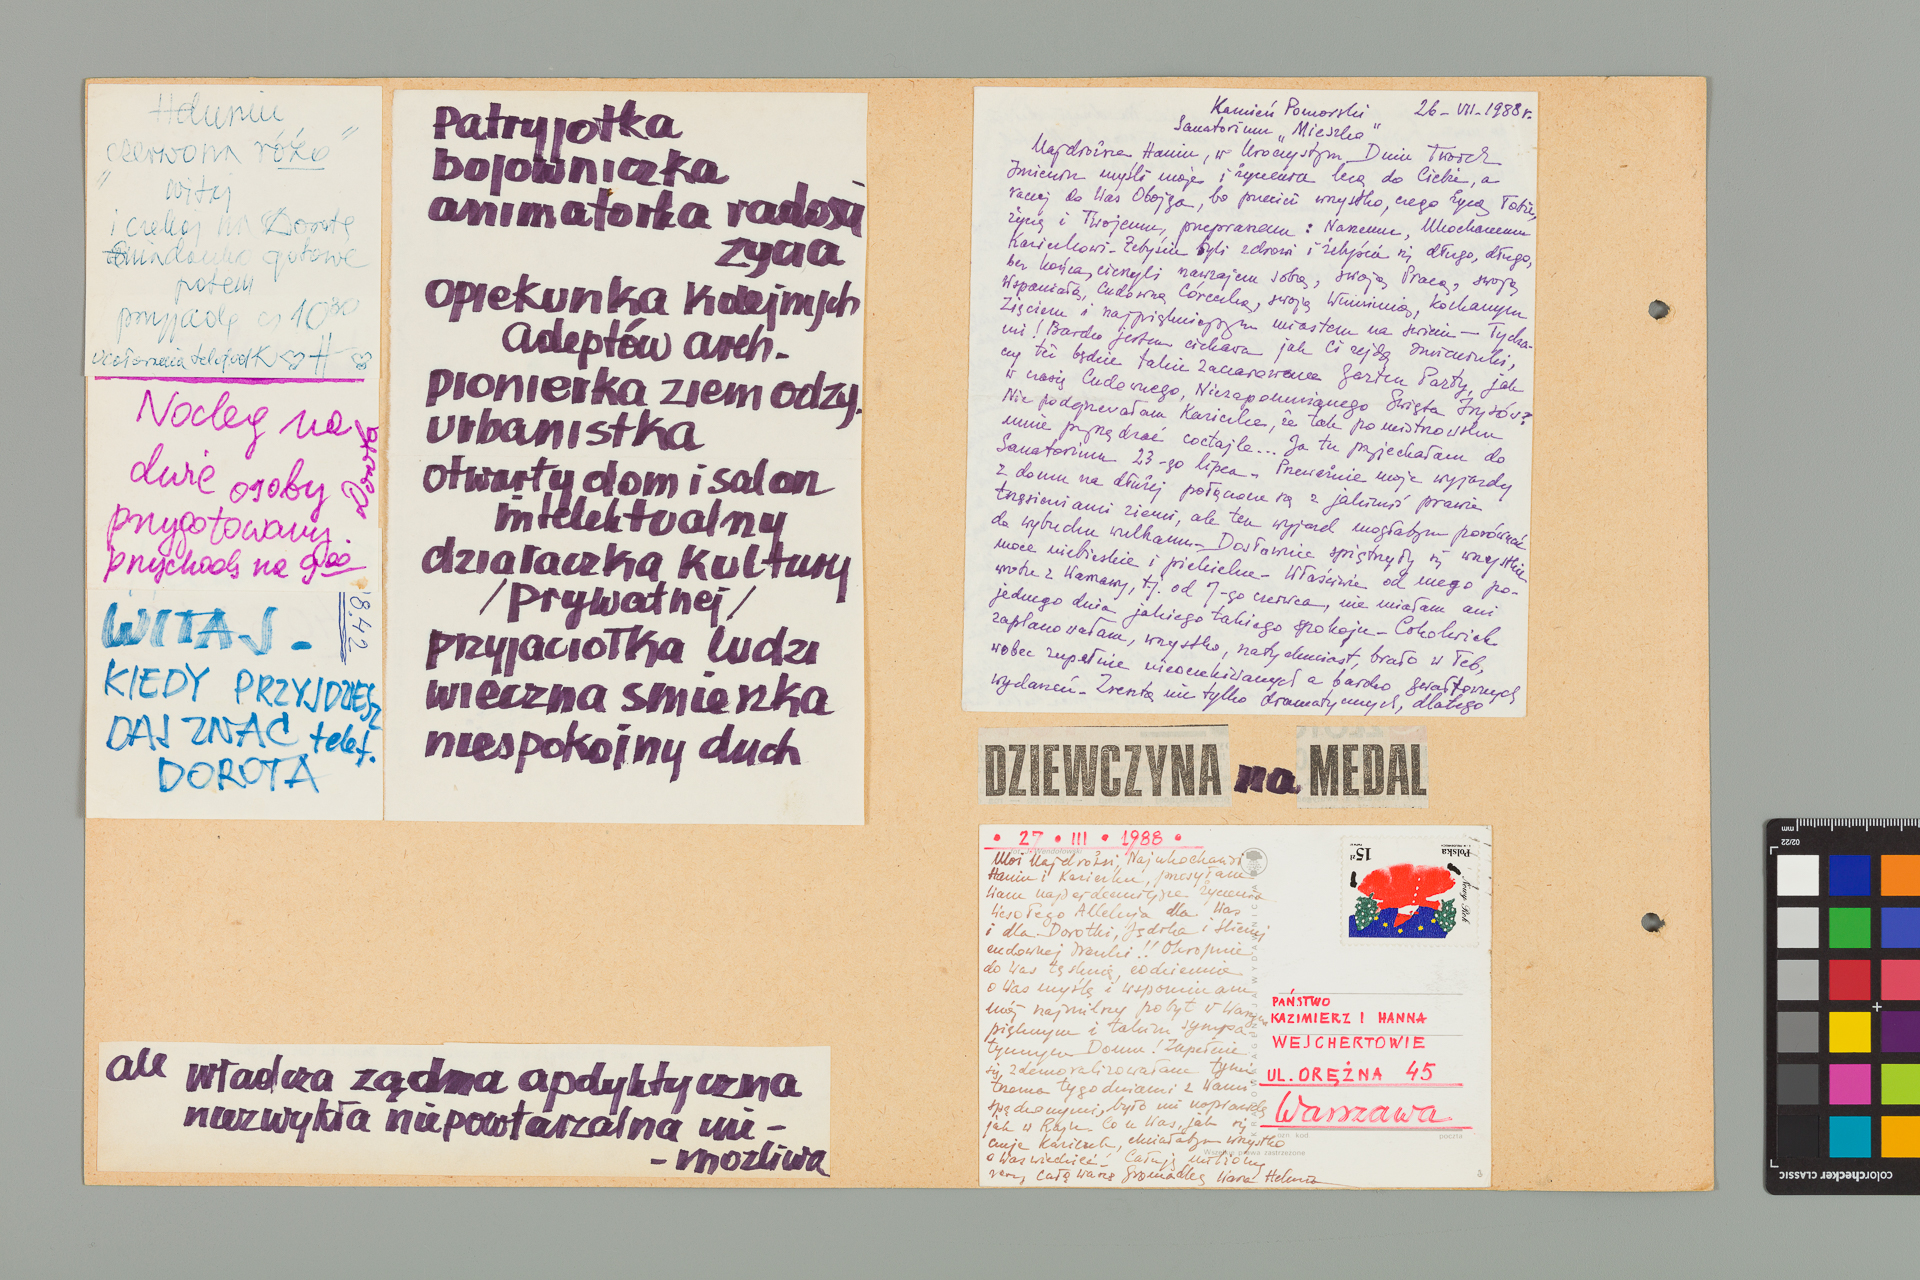 Haluniu
"czerwona różo"
witaj
i czekaj na Dorotę
śniadanko gotowe
potem
przyjadę os 10³⁰
H
Nocleg na
dwie osoby
przygotowany.
przychodzę na 9⁰⁰
Dorota
WITAJ -
8.42
KIEDY PRZYJDZIESZ
DAJ ZNAĆ telef.
DOROTA
Patryjotka
bojowniczka
animatorka radości
życia
opiekunka kolejnych
adeptów arch.
pionierka ziem odzy.
urbanistka
otwarty dom i salon
intelektualny
działaczka kultury
/prywatnej/
przyjaciołka ludzi
wieczna śmieszka
niespokojny duch
ale władcza żądna apdyktyczna
niezwykła niepowtarzalna nie-
-możliwa
Kamień Pomorski 26-VII-1988r.
Sanatorium "Mieszko"
Najdroższa Haniu, w Uroczystym Dniu Twoich
Imienin myśli moje i życzenia lecą do Ciebie, a
raczej do Was Obojga, bo przecież wszystko, czego życzę Tobie,
życzę i Twojemu, przepraszam: Naszemu, Ukochanemu
Kazieńkowi - Żebyście byli zdrowi i żebyście się długo, długo,
bez końca, cieszyli nawzajem sobą, swoją Pracą, swoją
Wspaniałą, Cudowną Córeczką, swoją Wnusią, kochanym
Zięciem i najpiękniejszym miastem na świecie — Tycha-
mi! Bardzo jestem ciekawa jak Ci zejdą Imieninki,
czy też będzie takie Zaczarowane Garten Party, jak
w czasie Cudownego, Niezapomnianego Święta Irysów?
Nie podejrzewałam Kazieńka, że tak po mistrzowsku
umie przyrządzać coctajle... Ja tu przyjechałam do
Sanatorium 23-go lipca - Przeważnie moje wyjazdy
z domu na dłużej połączone są z jakimiś prawie
trzęsieniami ziemi, ale ten wyjazd mogłabym porównać
do wybuchu wulkanu - Dosłownie sprzęgnęły się wszystkie
moce niebieskie i piekielne - Właściwie od mego po-
wrotu z Warszawy, tj. od 7-go czerwca, nie miałam ani
jednego dnia jakiego takiego spokoju - Cokolwiek
zaplanowałam, wszystko, natychmiast, brało w łeb,
wobec zupełnie nieoczekiwanych a bardzo gwałtownych
wydarzeń - Zresztą nie tylko dramatycznych, dlatego
DZIEWCZYNA na MEDAL
• 27 • III • 1988 •
Moi Najdrożsi, Najukochańsi
Haniu i Kazieńku, przesyłam
Wam najserdeczniejsze życzenia
Wesołego Alleluja dla Was
i dla Dorotki, Jędrka i Ślicznej
cudownej Iwonki!! Okropnie
do Was tęsknię, codziennie
o Was myślę i wspominam
mój najmilszy pobyt w Waszym
pięknym i takim sympa-
tycznym Domu! Zupełnie
się zdemoralizowałam tymi
trzema tygodniami z Wami
spędzonymi, było mi naprawdę
jak w Raju - Co u Was, jak się
czuje Kazieńek, chciałabym wszystko
o Was wiedzieć - Całuję miliony
razy, całą Waszą Gromadkę Wasza Helena
Polska 15 zł
Nowy Rok
PAŃSTWO
KAZIMIERZ I HANNA
WEJCHERTOWIE
UL. ORĘŻNA 45
Warszawa
poczta
Wszelkie prawa zastrzeżone
mm
02/22
colorchecker CLASSIC